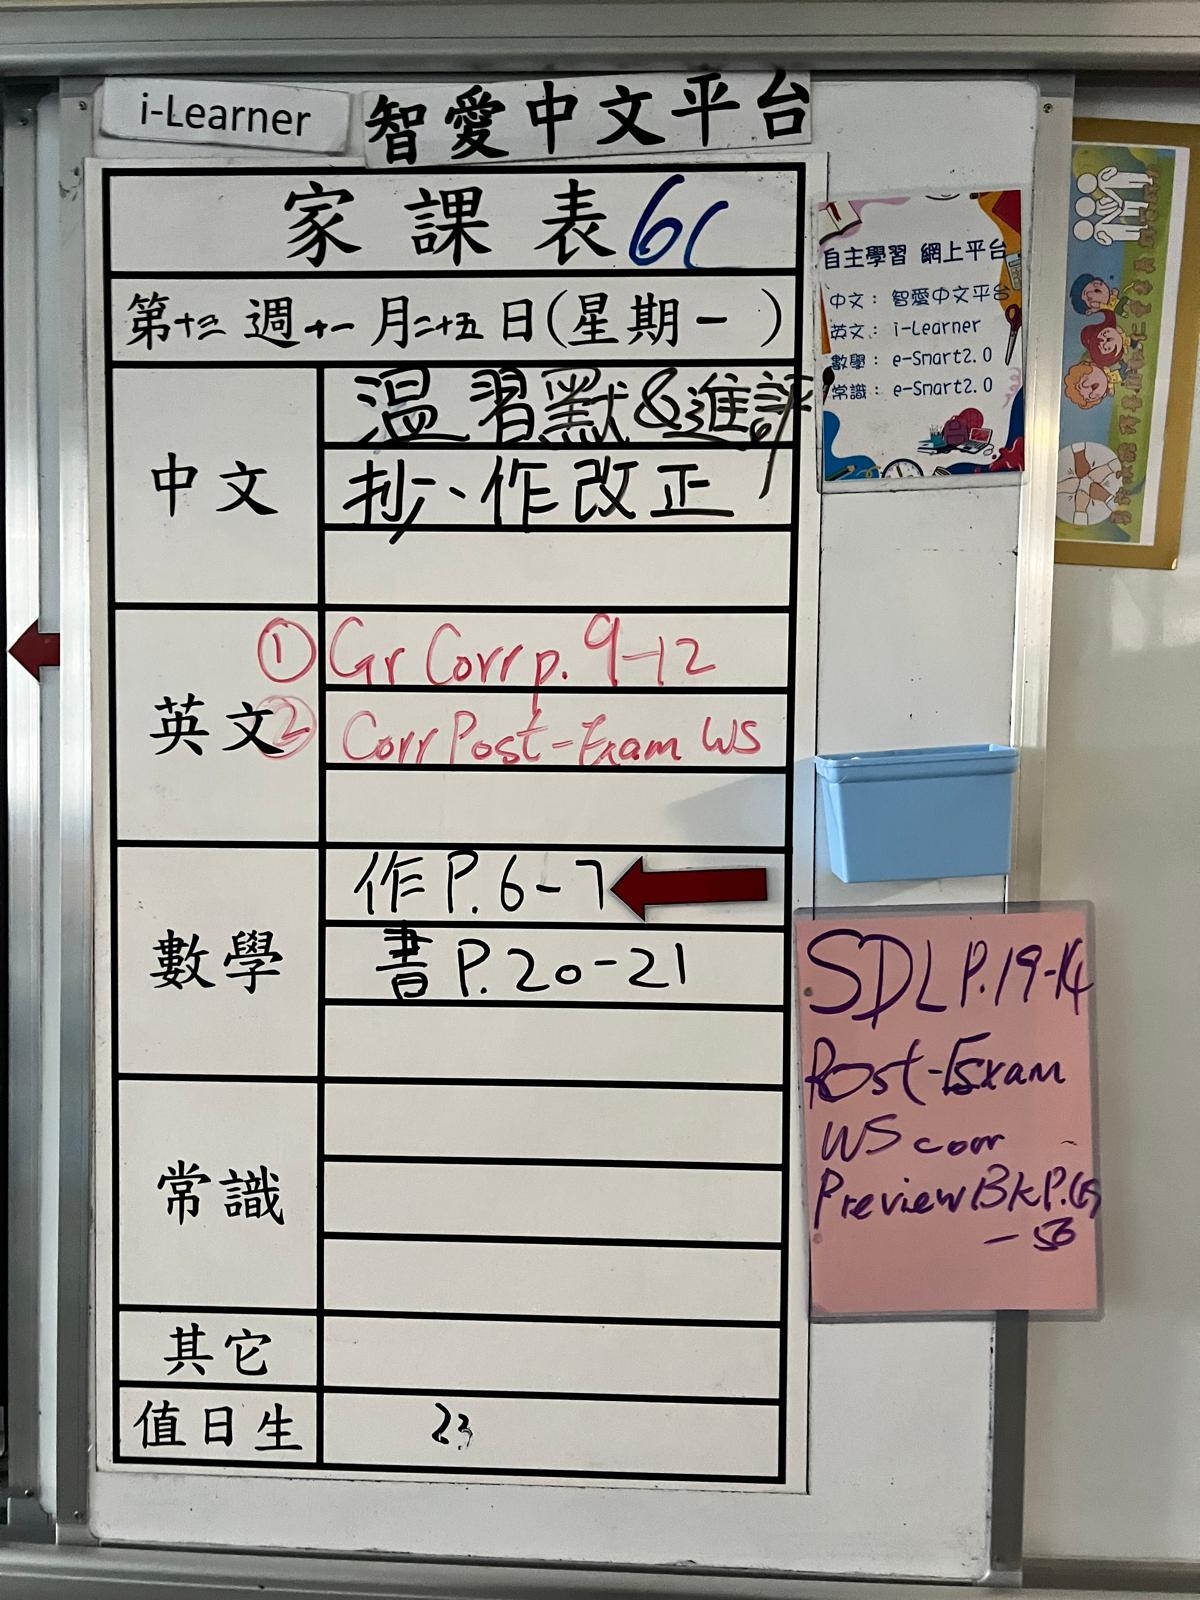 i-Learner 智愛中文平台
家課表 6C
第十三週十一月二十五日(星期一)
中文
溫習默&進評
抄、作改正
英文
① Gr Corr p. 9-12
② Corr Post-Exam WS
數學
作 P. 6-7
書 P. 20-21
常識
其它
值日生 23
自主學習 網上平台
中文： 智愛中文平台
英文： i-Learner
數學： e-Smart2.0
常識： e-Smart2.0
SDL P.19-
Post-Exam
WS corr
Preview Bk P.